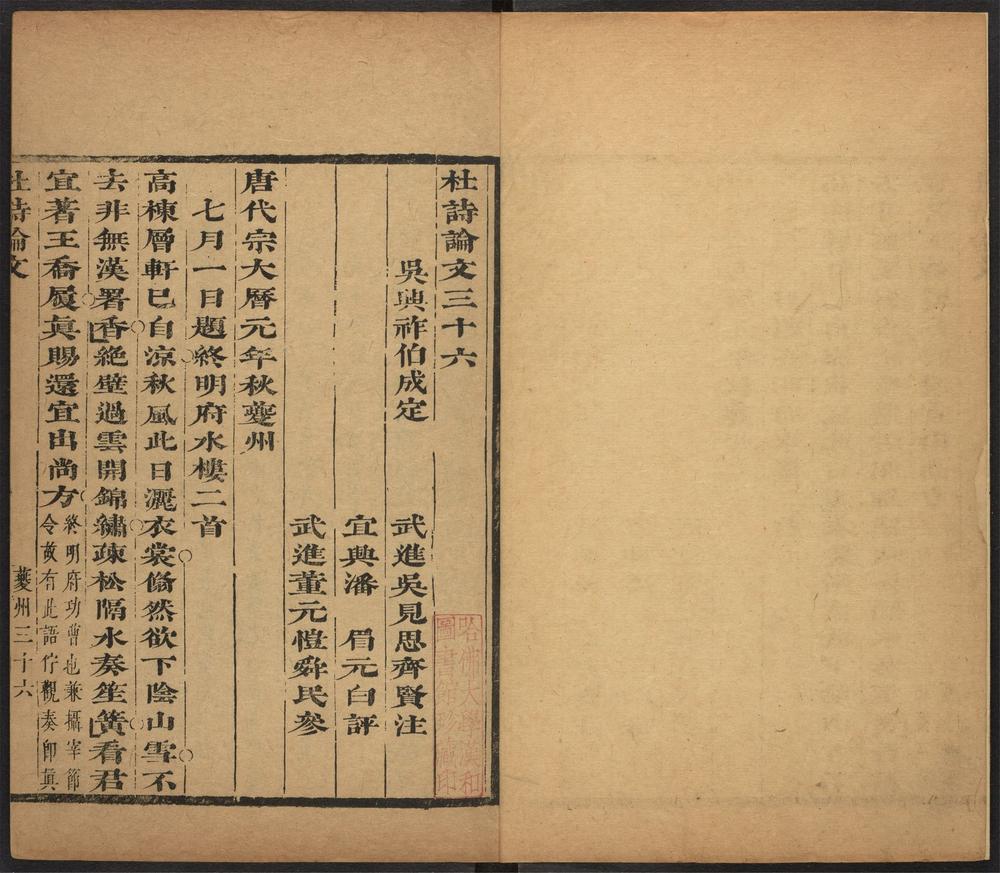 杜詩論文三十六
吳興祚伯成定
武進吳見思齊賢注
宜興潘眉元白評
武進董元愷舜民參
唐代宗大曆元年秋夔州
七月一日題終明府水樓二首
高棟層軒已自涼秋風此日灑衣裳翛然欲下陰山雪不
去非無漢署香絶壁過雲開錦繡疎松隔水奏笙簧看君
宜著王喬履真賜還宜出尚方
終明府功曹也兼攝宰節
令故有此語佇觀奏即真
杜詩論文
夔州三十六
哈佛大學漢和
圖書館珍藏印